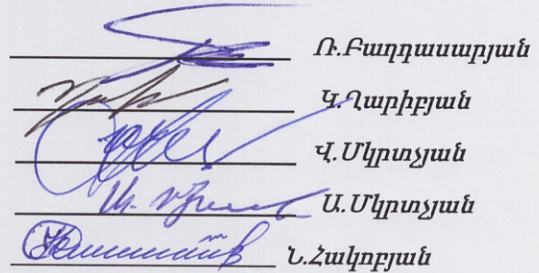 Ռ.Բաղդասարյան
Կ.Ղարիբյան
Վ.Մկրտչյան
Ա.Մկրտչյան
Ն.Հակոբյան